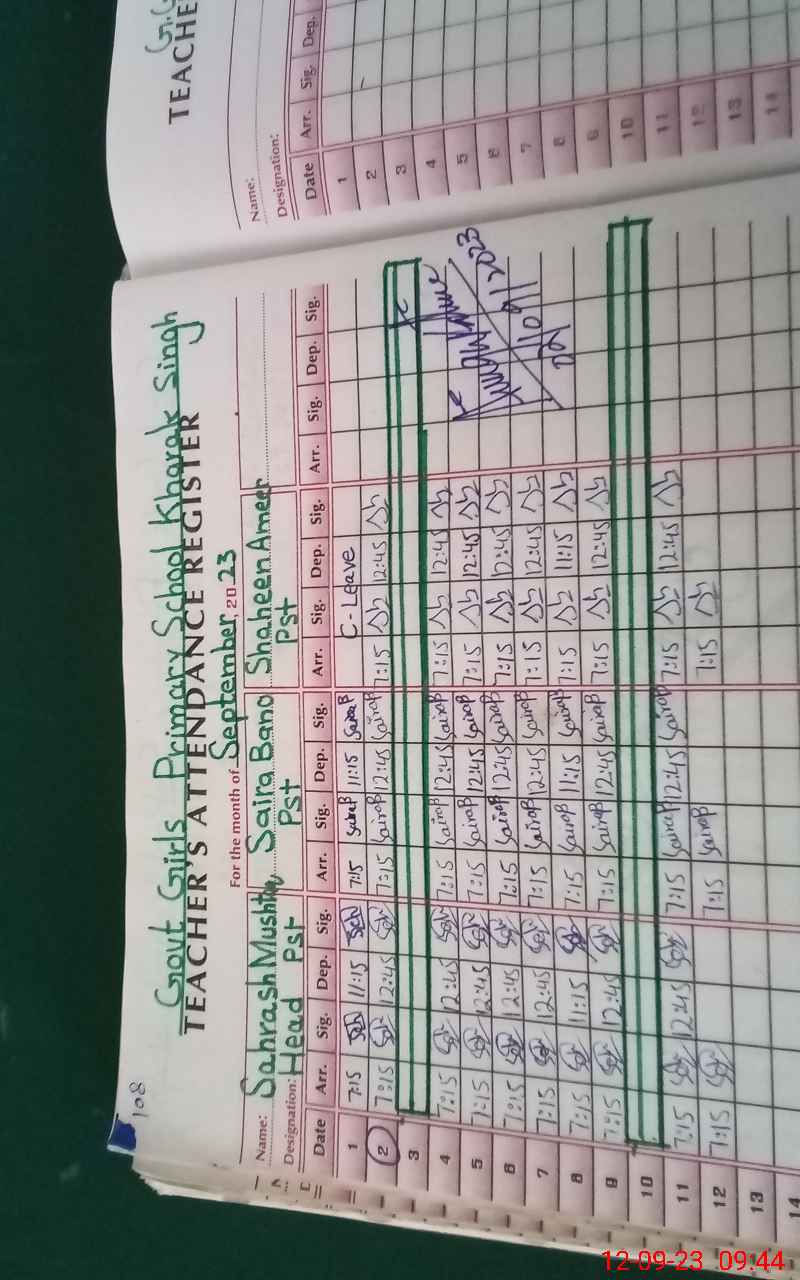 108
Govt Girls Primary School Kharak Singh
TEACHER'S ATTENDANCE REGISTER
For the month of September, 20 23
Name: Sahrash Mushtaq Saira Bano Shaheen Ameer
Designation: Head Pst Pst Pst
Date Arr. Sig. Dep. Sig. Arr. Sig. Dep. Sig. Arr. Sig. Dep. Sig. Arr. Sig. Dep. Sig.
1 7:15 11:15 7:15 SairaB 11:15 SairaB C-Leave
2 7:15 12:45 7:15 SairaB 12:45 SairaB 7:15 12:45
3
4 7:15 12:45 7:15 SairaB 12:45 SairaB 7:15 12:45
5 7:15 12:45 7:15 SairaB 12:45 SairaB 7:15 12:45
6 7:15 12:45 7:15 SairaB 12:45 SairaB 7:15 12:45
7 7:15 12:45 7:15 SairaB 12:45 SairaB 7:15 12:45
8 7:15 11:15 7:15 SairaB 11:15 SairaB 7:15 11:15
9 7:15 12:45 7:15 SairaB 12:45 SairaB 7:15 12:45
10
11 7:15 12:45 7:15 SairaB 12:45 SairaB 7:15 12:45
12 7:15 7:15 SairaB 7:15
13
14
TEACHE
Name:
Designation:
Date Arr. Sig. Dep.
1
2
3
4
5
6
7
8
9
10
11
12
13
14
12-09-23 09:44